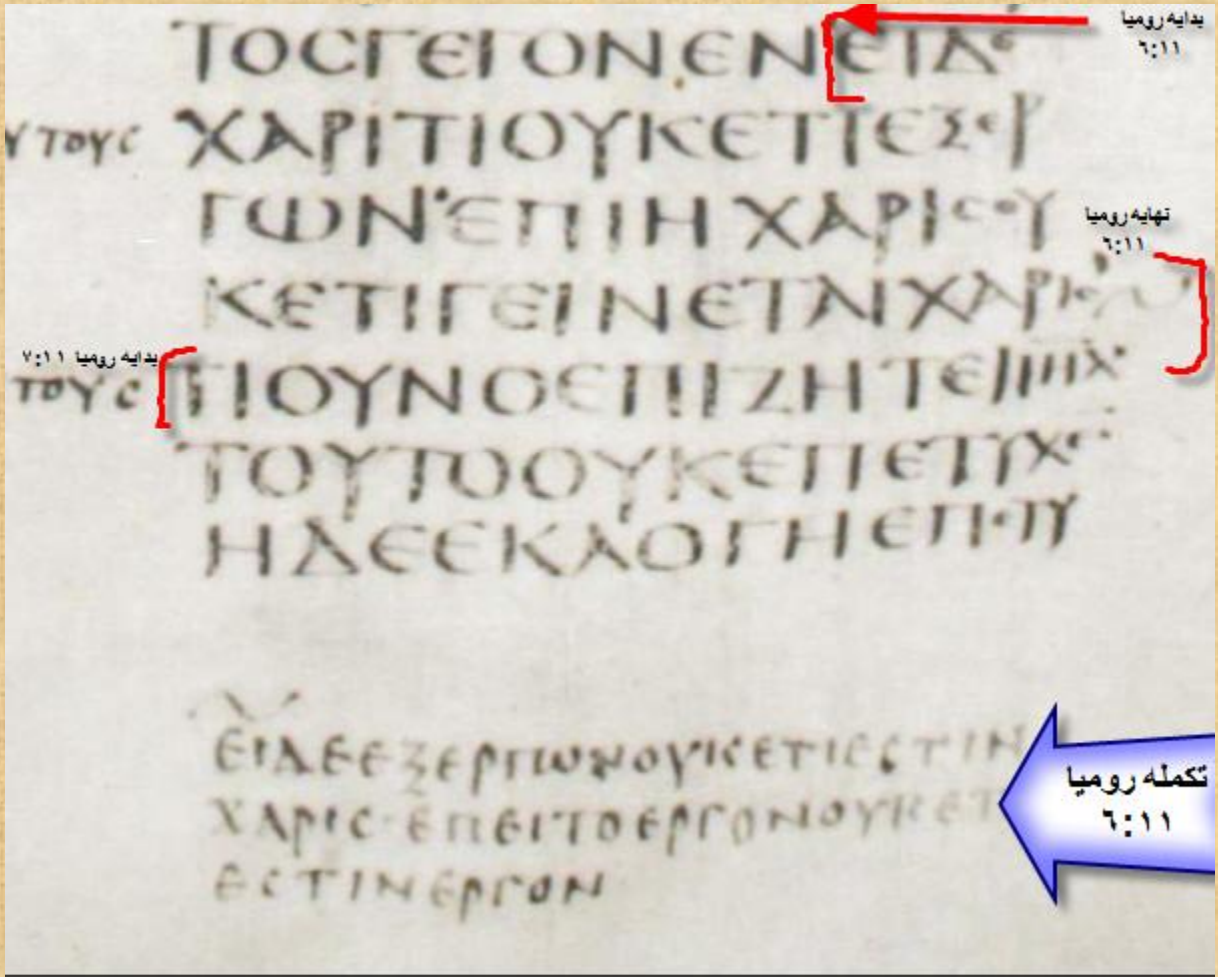 بدايه روميا
٦:١١
ΤΟϹΓΕΓΟΝΕΝΕΙΔΕ
ΥΤΟΥϹ ΧΑΡΙΤΙΟΥΚΕΤΙΕΞΕΡ
ΓΩΝ·ΕΠΙΗΧΑΡΙϹΟΥ
نهايه روميا
٦:١١
ΚΕΤΙΓΕΙΝΕΤΑΙΧΑΡΙϹ
بدايه روميا ٧:١١
ΤΟΥϹ ΤΙΟΥΝΟΕΠΙΖΗΤΕΙΙΗΛ
ΤΟΥΤΟΟΥΚΕΠΕΤΥΧΕ
ΗΔΕΕΚΛΟΓΗΕΠΕΤΥ
ΕΙΔΕΕΞΕΡΓΩΝΟΥΚΕΤΙΕϹΤΙΝ
ΧΑΡΙϹ·ΕΠΕΙΤΟΕΡΓΟΝΟΥΚΕΤ
ΕϹΤΙΝΕΡΓΟΝ
تكمله روميا
٦:١١